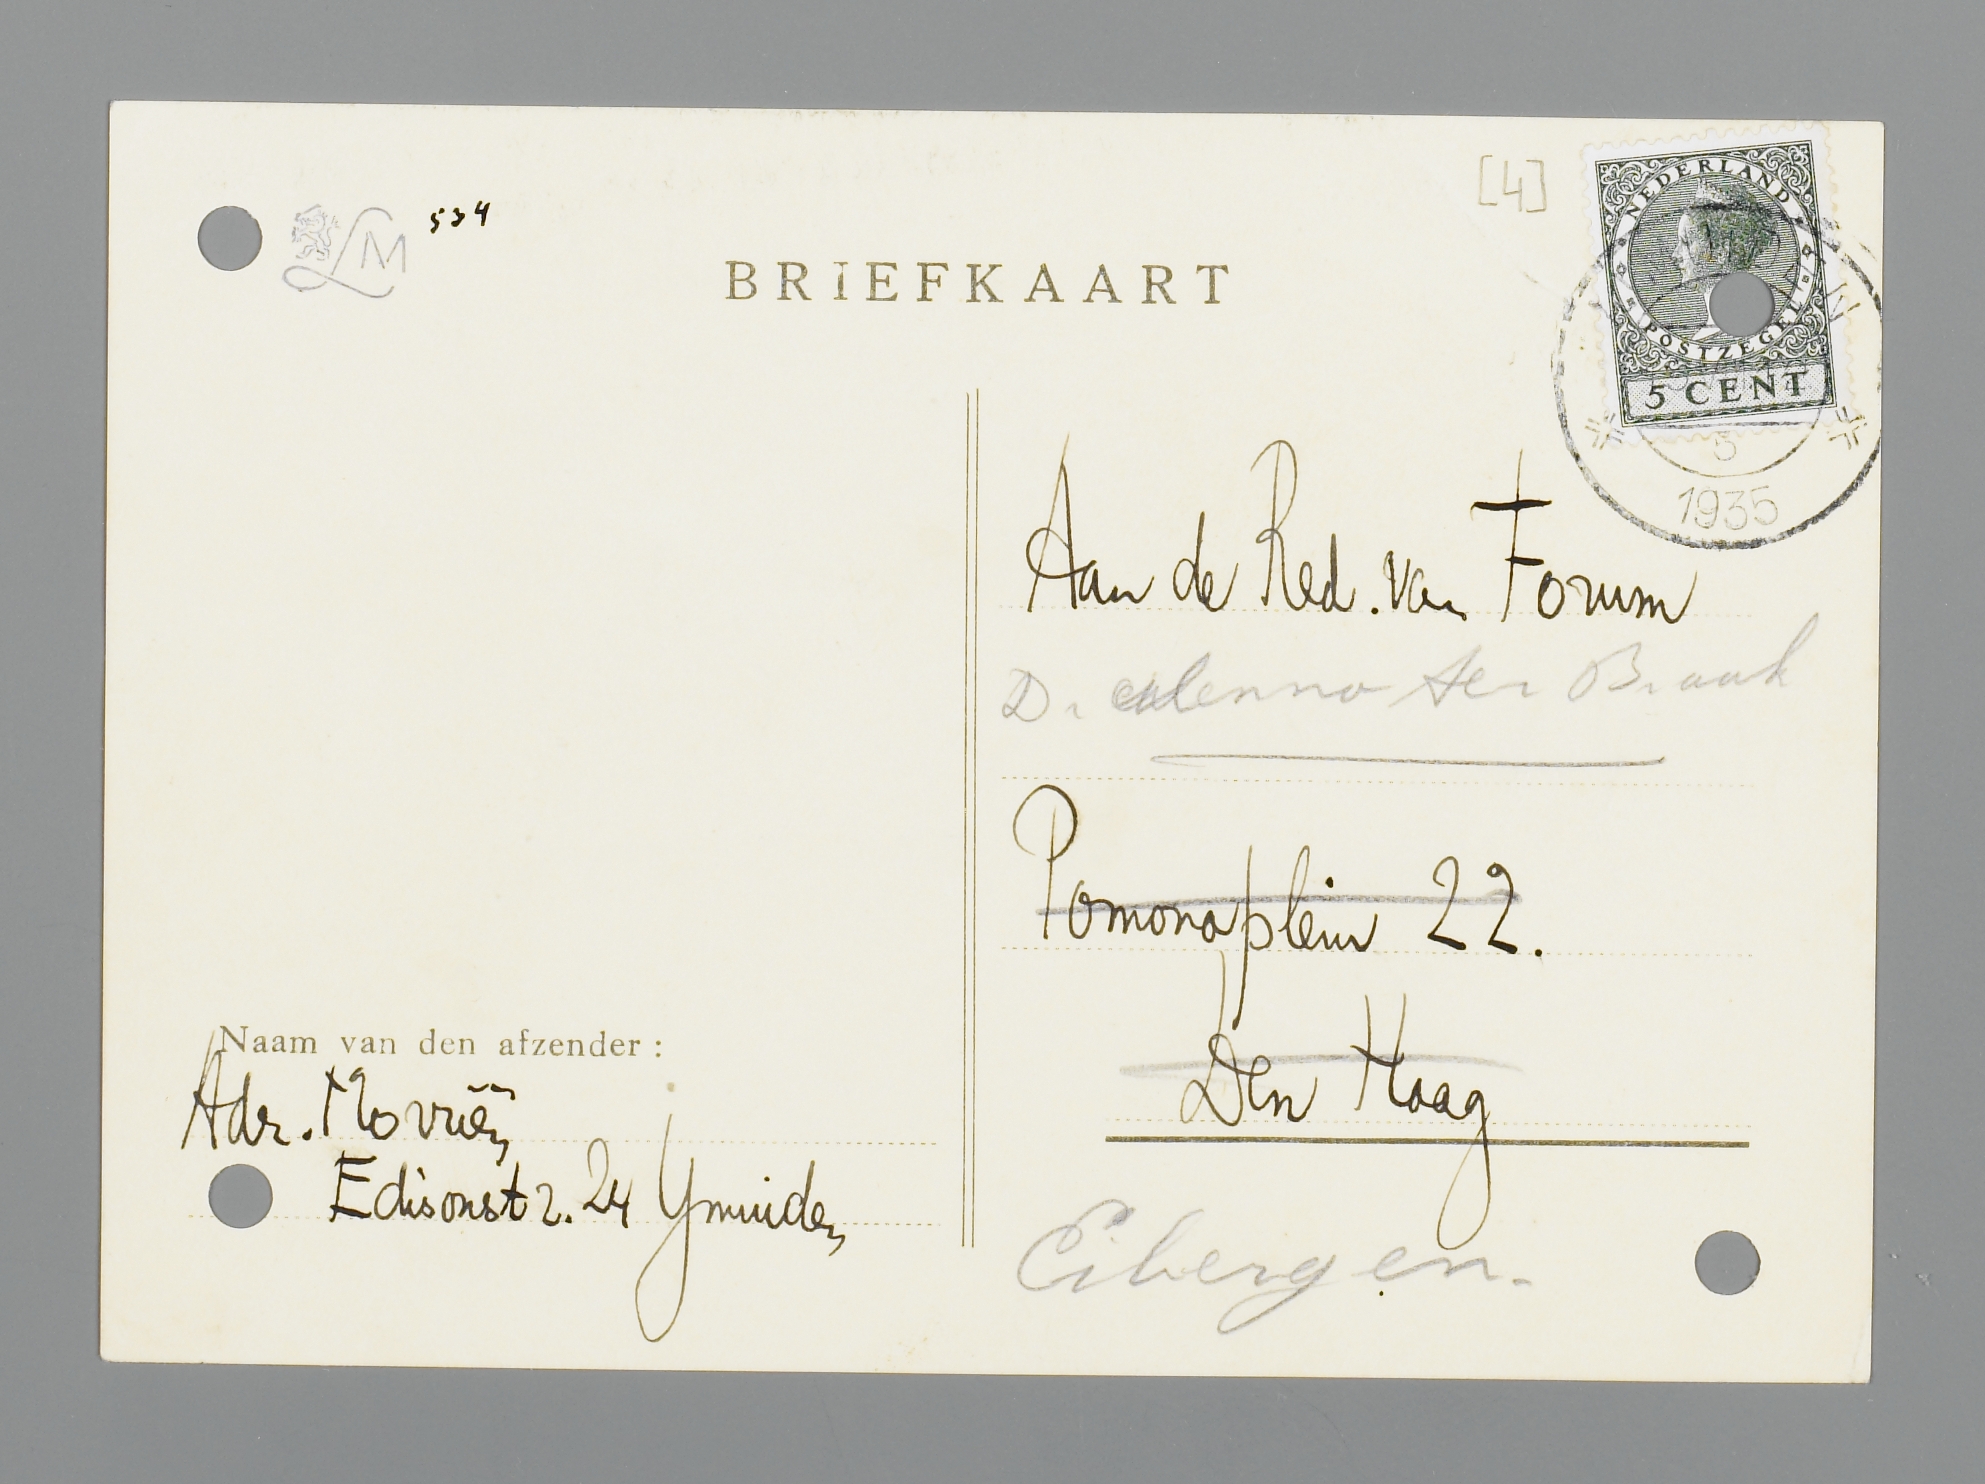 LM 534
[4]
BRIEFKAART
NEDERLAND
POSTZEGEL
5 CENT
5
1935
Aan de Red. van Forum
Dr Menno ter Braak
Pomonaplein 22.
Den Haag
Eibergen.
Naam van den afzender:
Adr. Moriën
Edisonstr. 24 Ymuiden